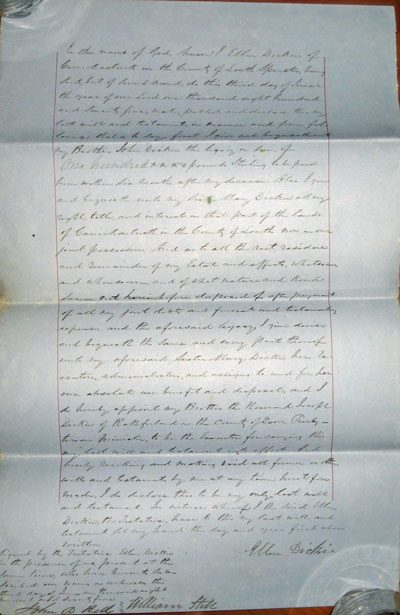 In the name of God Amen I Ellen Dickie of
in the County of Louth Spinster being
sick but of sound mind, do this third day of June in
the year of our Lord one thousand eight hundred
and seventy five, make, publish and declare this my
last will and testament, in manner and form fol-
lowing, that is to say, first I give and bequeath unto
my Brother John Dickie the legacy or sum of
One hundred pounds Sterling to be paid
him within six months after my decease. Also I give
and bequeath unto my Sister Mary Dickie all my
right, title, and interest in that part of the lands
of in the County of Louth now in our
joint possession. And as to all the rest residue
and remainder of my Estate and effects, whatsoever
and wheresoever, and of what nature and kind
soever not herein before disposed of after payment
of all my just debts and funeral and testamentary
expenses and the aforesaid legacy, I give devise
and bequeath the same and every part thereof
unto my aforesaid Sister Mary Dickie her Ex-
ecutors, administrators, and assigns to and for her
own absolute use benefit and disposal, and I
do hereby appoint my Brother the Reverend Joseph
Dickie of Rathfriland in the County of Down Presby-
terian Minister, to be the Executor for carrying this
my last will and testament into effect. And
hereby revoking and making void all former
wills and testaments by me at any time heretofore
made, I do declare this to be my only last will
and testament. In witness whereof I the said Ellen
Dickie, the testatrix, have to this my last will and
testament set my hand the day and year first above
written
Ellen Dickie
Signed by the Testatrix Ellen Dickie
in the presence of us present at the
same time, who have hereunto sub-
scribed our names as witnesses this
third day of June one thousand eight
John William